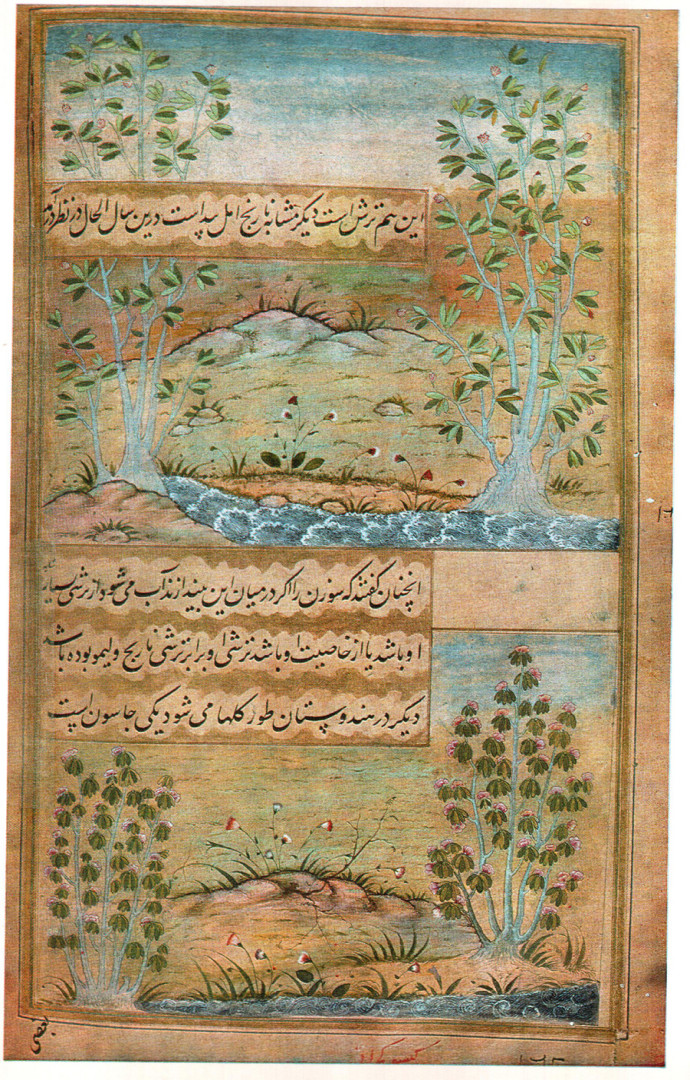 این هم ترش است دیگر مشابه نارنج امل بید است درین سال الحال در نظر درآمد
انچنان گفتند که سوزن را اگر در میان این بیندازند آب می شود از ترشی بسیار
او باشد یا از خاصیت او باشد ترشی او برابر ترشی نارنج و لیمو بوده باشد
دیگر در هندوستان طور گلها می شود یکی جاسون است
بعضی